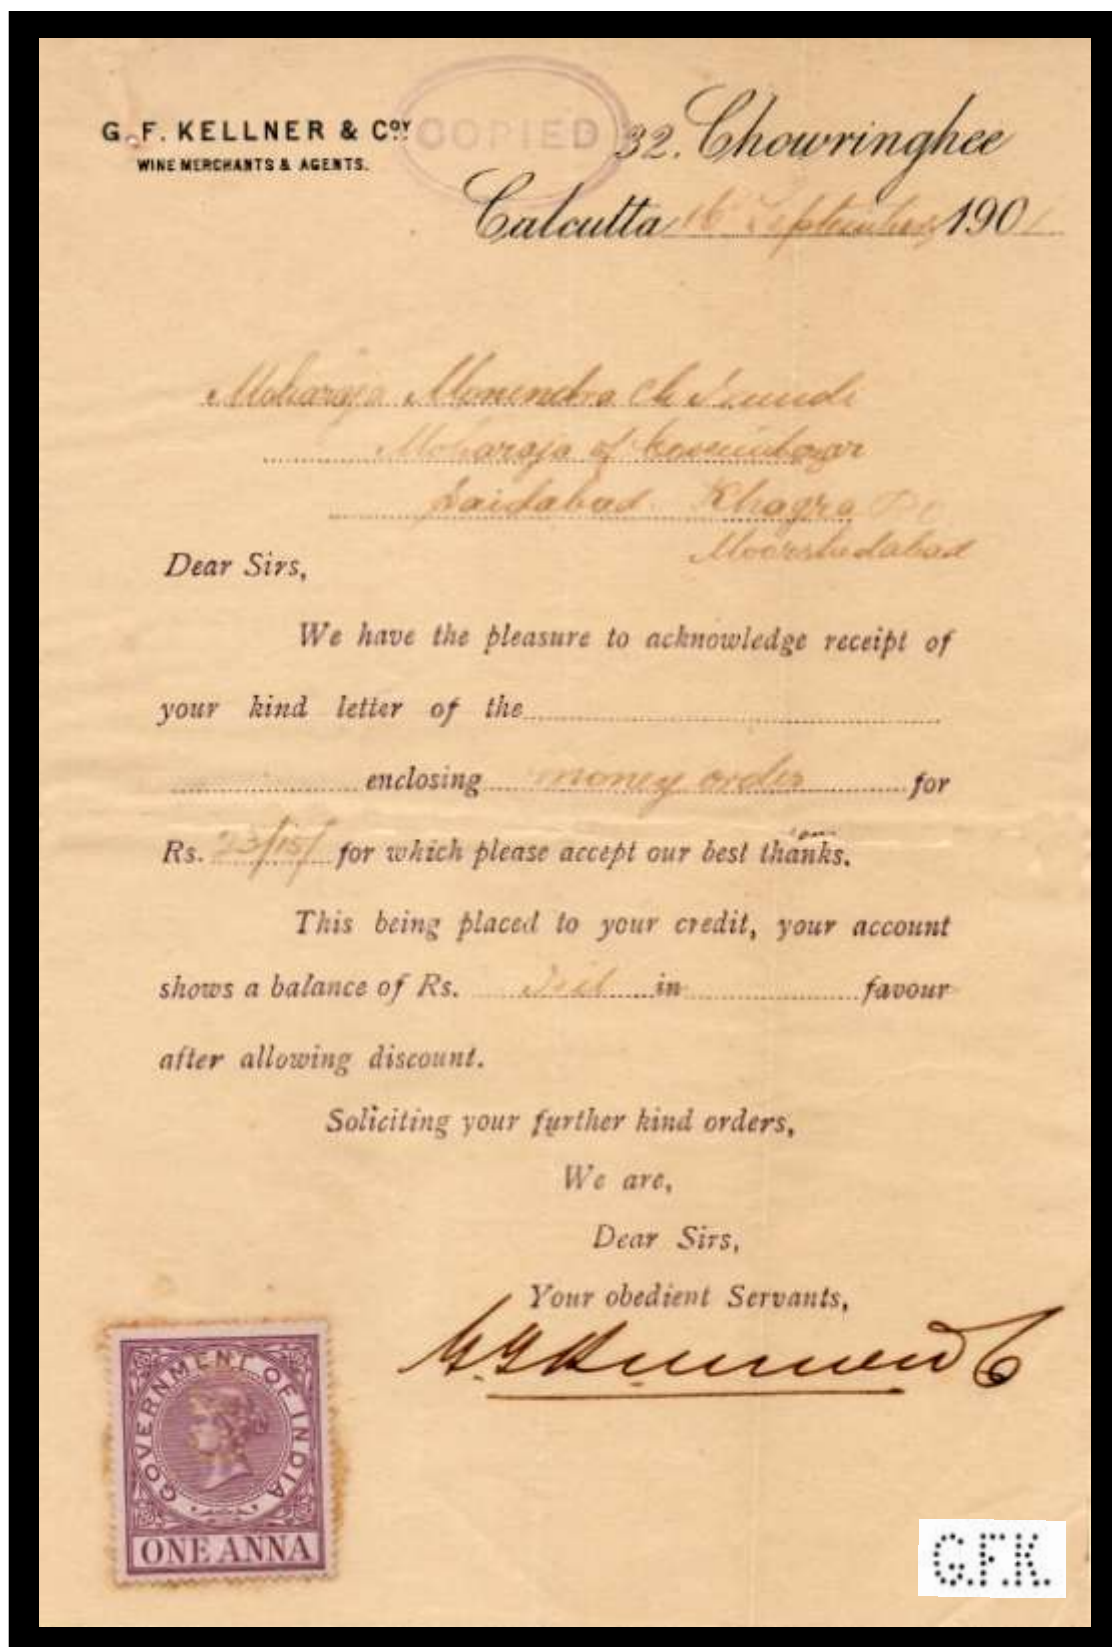 G. F. KELLNER & COY
WINE MERCHANTS & AGENTS.
COPIED
32. Chowringhee
Calcutta 16 September 1901
Moharaja Monendra Ch Naundi
Moharaja of Cossimbazar
Saidabad Khagra P.O.
Moorshedabad
Dear Sirs,
We have the pleasure to acknowledge receipt of
your kind letter of the
enclosing money order for
Rs. 23/15/ for which please accept our best thanks.
This being placed to your credit, your account
shows a balance of Rs. Nil in favour
after allowing discount.
Soliciting your further kind orders,
We are,
Dear Sirs,
Your obedient Servants,
GOVERNMENT OF INDIA
ONE ANNA
G.F.K.